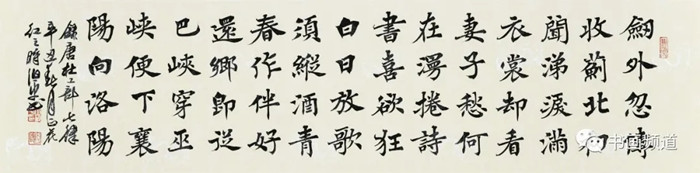 劔外忽傳
收薊北初
聞涕淚滿
衣裳却看
妻子愁何
在漫捲詩
書喜欲狂
白日放歌
須縱酒青
春作伴好
還鄉即從
巴峽穿巫
峽便下襄
陽向洛陽
錄唐杜工部七律
辛丑月正花
红之時
书国频道